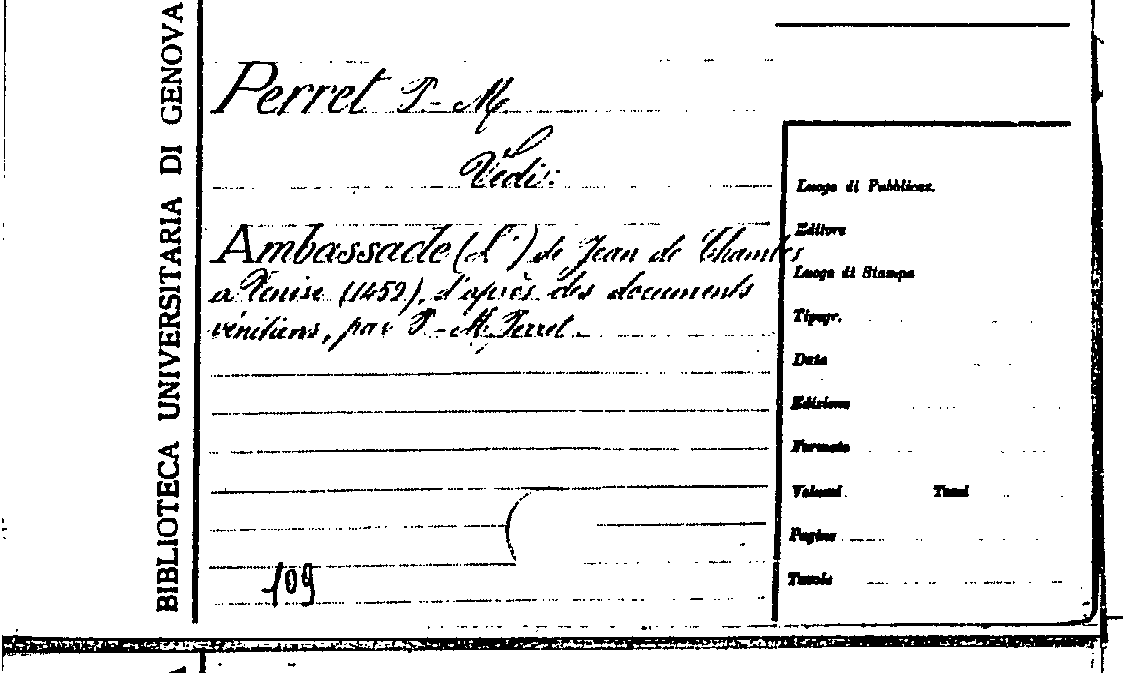 BIBLIOTECA UNIVERSITARIA DI GENOVA
Perret P-M
Vedi:
Ambassade (L') de Jean de Chambes
a Venise (1459), d'après des documents
vénitiens, par P-M. Perret.
109
Luogo di Pubblicaz.
Editore
Luogo di Stampa
Tipogr.
Data
Edizione
Formato
Volumi Tomi
Pagine
Tavole